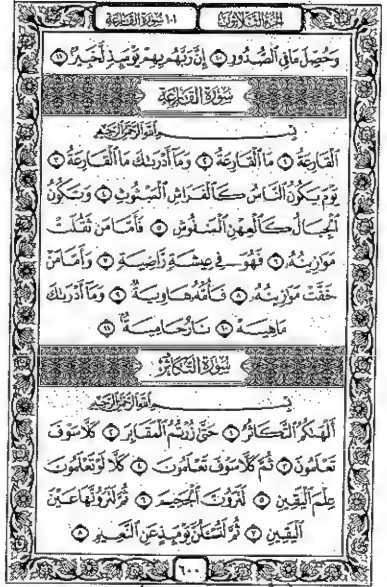 الجزء الثلاثون
١٠١ سورة القارعة
وَحُصِّلَ مَا فِي الصُّدُورِ ١٠ إِنَّ رَبَّهُم بِهِمْ يَوْمَئِذٍ لَّخَبِيرٌ ١١
سُورَةُ القَارِعَةِ
بِسْمِ اللَّهِ الرَّحْمَٰنِ الرَّحِيمِ
الْقَارِعَةُ ١ مَا الْقَارِعَةُ ٢ وَمَا أَدْرَىٰكَ مَا الْقَارِعَةُ ٣
يَوْمَ يَكُونُ النَّاسُ كَالْفَرَاشِ الْمَبْثُوثِ ٤ وَتَكُونُ
الْجِبَالُ كَالْعِهْنِ الْمَنفُوشِ ٥ فَأَمَّا مَن ثَقُلَتْ
مَوَازِينُهُ ٦ فَهُوَ فِي عِيشَةٍ رَّاضِيَةٍ ٧ وَأَمَّا مَنْ
خَفَّتْ مَوَازِينُهُ ٨ فَأُمُّهُ هَاوِيَةٌ ٩ وَمَا أَدْرَىٰكَ
مَا هِيَهْ ١٠ نَارٌ حَامِيَةٌ ١١
سُورَةُ التَّكَاثُرِ
بِسْمِ اللَّهِ الرَّحْمَٰنِ الرَّحِيمِ
أَلْهَىٰكُمُ التَّكَاثُرُ ١ حَتَّىٰ زُرْتُمُ الْمَقَابِرَ ٢ كَلَّا سَوْفَ
تَعْلَمُونَ ٣ ثُمَّ كَلَّا سَوْفَ تَعْلَمُونَ ٤ كَلَّا لَوْ تَعْلَمُونَ
عِلْمَ الْيَقِينِ ٥ لَتَرَوُنَّ الْجَحِيمَ ٦ ثُمَّ لَتَرَوُنَّهَا عَيْنَ
الْيَقِينِ ٧ ثُمَّ لَتُسْـَٔلُنَّ يَوْمَئِذٍ عَنِ النَّعِيمِ ٨
٦٠٠